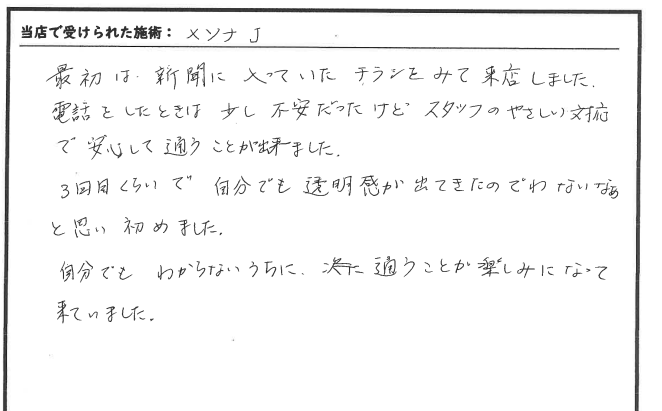 当店で受けられた施術： メソナJ
最初は 新聞に入っていた チラシをみて来店しました.
電話をしたときは 少し不安だったけど スタッフのやさしい対応
で安心して通うことが出来ました.
3回目くらいで 自分でも透明感が出てきたのでわないなぁ
と思い初めました.
自分でも わからないうちに. 次に通うことが楽しみになって
来ていました.